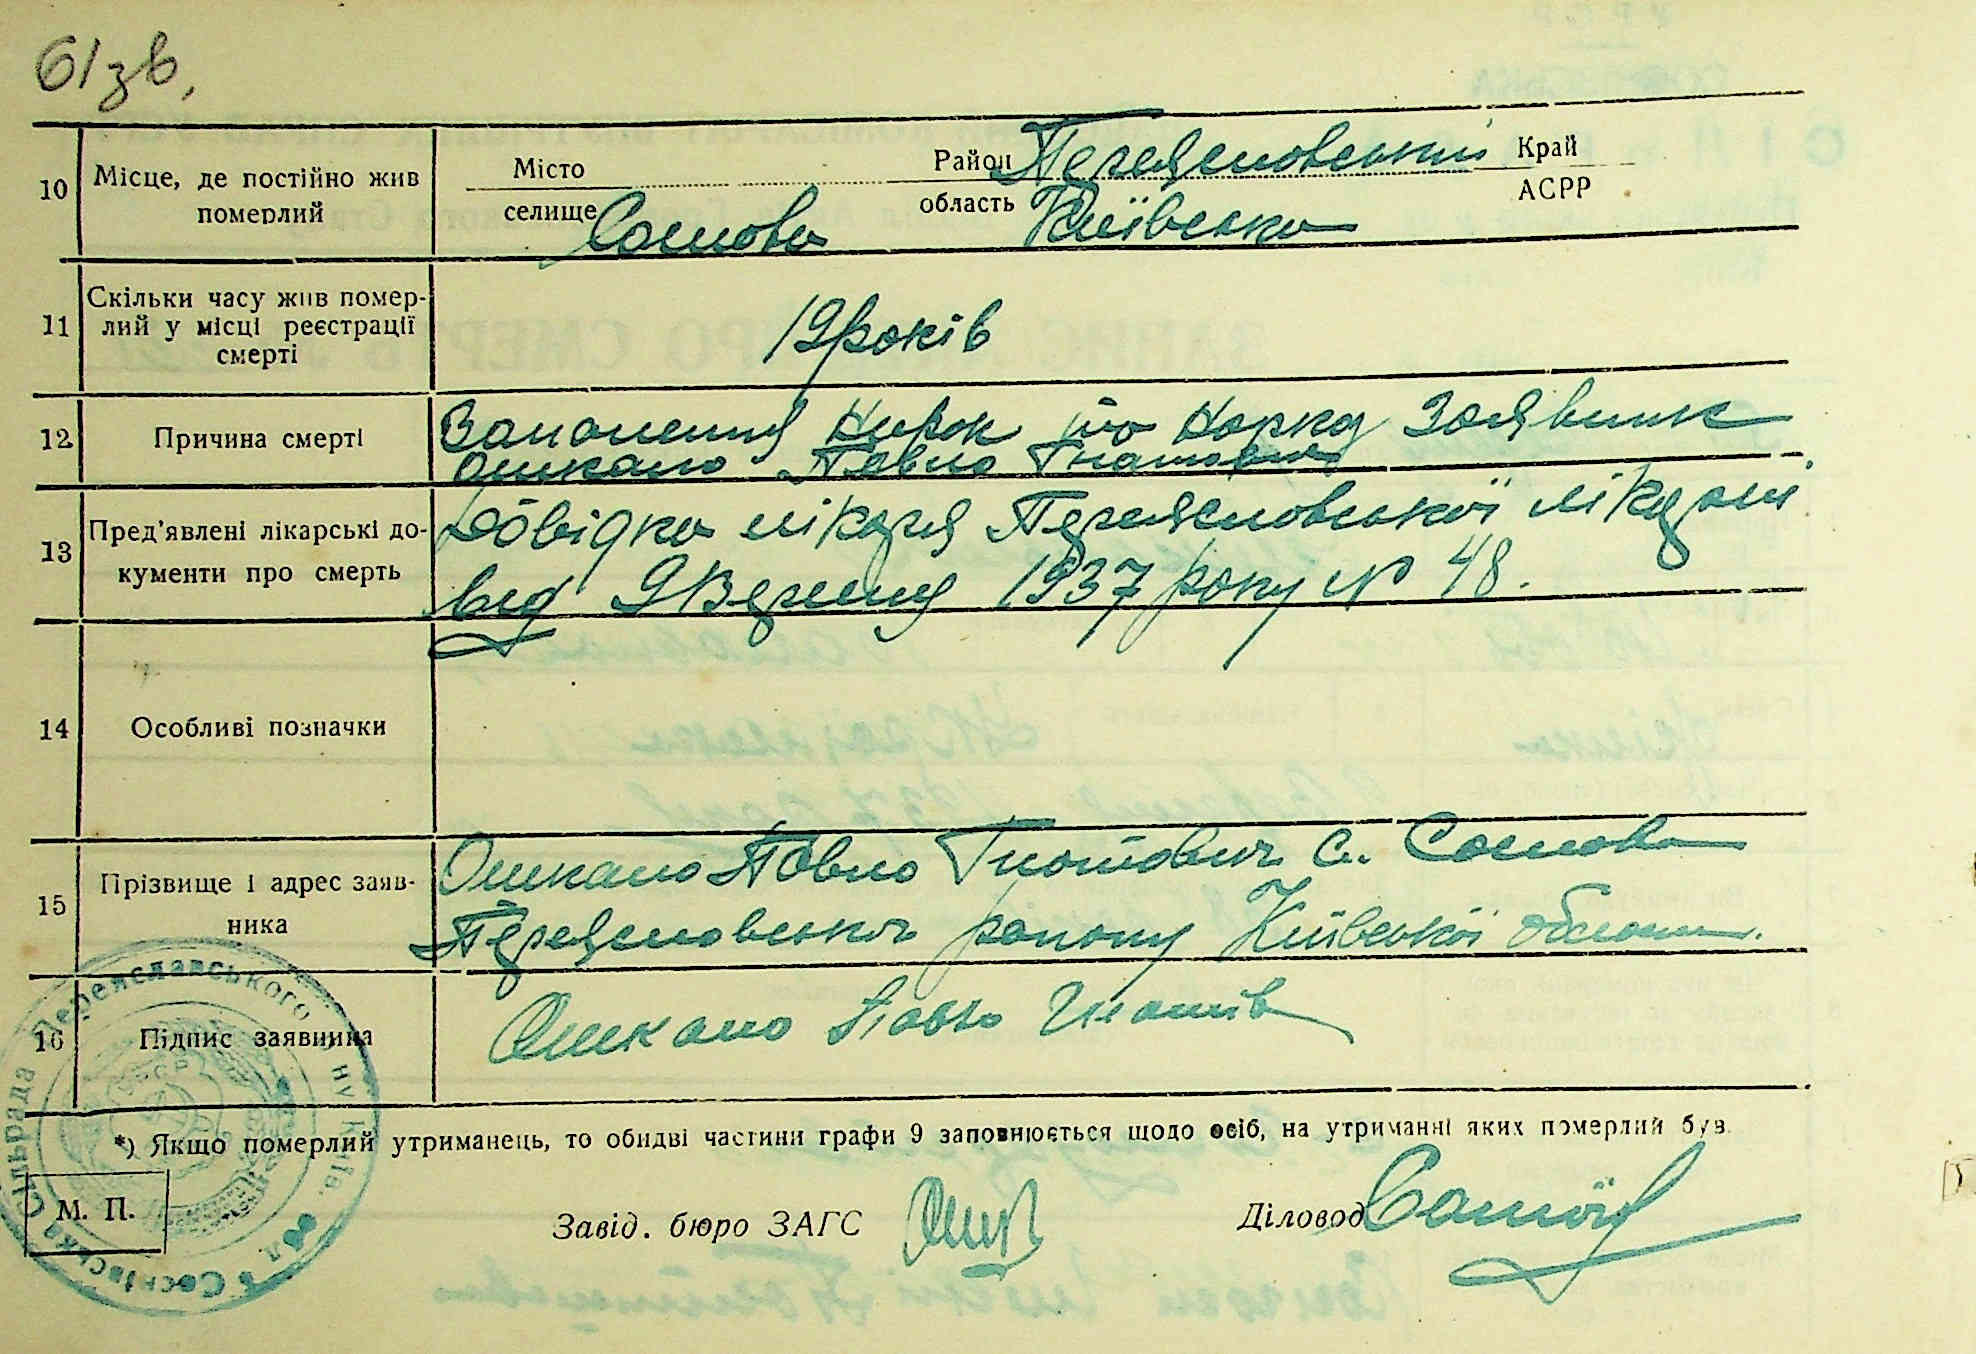 61 зв.
10 Місце, де постійно жив померлий
Місто Район Переяславський Край
селище Соснова область Київська АСРР
11 Скільки часу жив помер-
лий у місці реєстрації
смерті
19 років
12 Причина смерті
Запалення Нирок Заявник
Павло Гнатович
13 Пред'явлені лікарські до-
кументи про смерть
Довідка лікаря Переяславської лікарні
від 9 Вересня 1937 року № 48.
14 Особливі позначки
15 Прізвище і адрес заяв-
ника
Павло Гнатович с. Соснова
Переяславського району Київської області.
16 Підпис заявника
Павло Гнатів
*) Якщо померлий утриманець, то обидві частини графи 9 заповнюється щодо осіб, на утриманні яких померлий був.
М. П.
Завід. бюро ЗАГС
Діловод
Соснівська сільрада Переяславського
УРСР